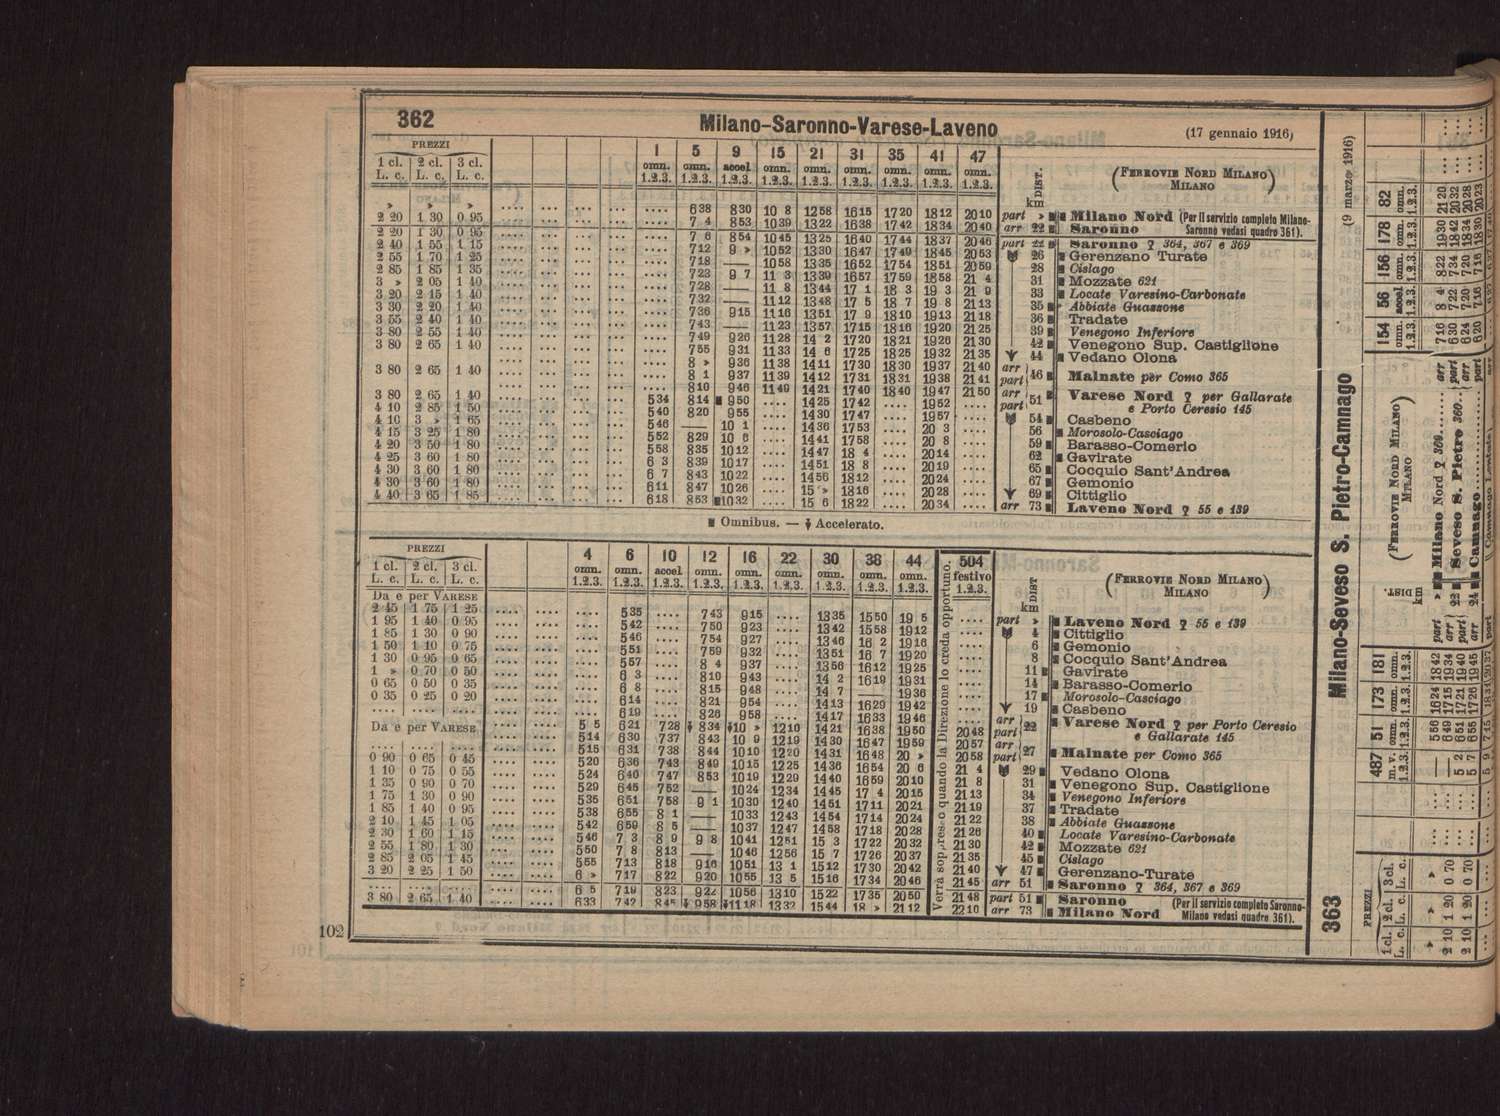 362 Milano-Saronno-Varese-Laveno (17 gennaio 1916)
PREZZI 1 5 9 15 21 31 35 41 47
1 cl. 2 cl. 3 cl. omn. omn. accel omn. omn. omn. omn. omn. omn. DIST. (FERROVIE NORD MILANO)
L. c. L. c. L. c. 1.2.3. 1.2.3. 1.2.3. 1.2.3. 1.2.3. 1.2.3. 1.2.3. 1.2.3. 1.2.3. km MILANO
» » » .... 638 830 10 8 1258 1615 1720 1812 2010 part » Milano Nord (Per il servizio completo Milano-
2 20 1 30 0 95 .... 7 4 853 1039 1322 1638 1742 1834 2040 arr 22 Saronno Saronno vedasi quadro 361).
2 20 1 30 0 95 .... 7 6 854 1045 1325 1640 1744 1837 2046 part 22 Saronno ♀ 364, 367 e 369
2 40 1 55 1 15 .... 712 9 » 1052 1330 1647 1749 1845 2053 26 Gerenzano Turate
2 55 1 70 1 25 .... 718 — 1058 1335 1652 1754 1851 2059 28 Cislago
2 85 1 85 1 35 .... 723 9 7 11 3 1339 1657 1759 1858 21 4 31 Mozzate 621
3 » 2 05 1 40 .... 728 — 11 8 1344 17 1 18 3 19 3 21 9 33 Locate Varesino-Carbonate
3 20 2 15 1 40 .... 732 — 1112 1348 17 5 18 7 19 8 2113 35 Abbiate Guazzone
3 30 2 20 1 40 .... 736 915 1116 1351 17 9 1810 1913 2118 36 Tradate
3 55 2 40 1 40 .... 743 — 1123 1357 1715 1816 1920 2125 39 Venegono Inferiore
3 80 2 55 1 40 .... 749 926 1128 14 2 1720 1821 1926 2130 42 Venegono Sup. Castiglione
3 80 2 65 1 40 .... 755 931 1133 14 6 1725 1825 1932 2135 44 Vedano Olona
.... 8 » 936 1138 1411 1730 1830 1937 2140 arr
3 80 2 65 1 40 .... 8 1 937 1139 1412 1731 1831 1938 2141 part 46 Malnate per Como 365
.... 810 946 1149 1421 1740 1840 1947 2150 arr Varese Nord ♀ per Gallarate
3 80 2 65 1 40 534 814 950 .... 1425 1742 .... 1952 part 51 e Porto Ceresio 145
4 10 2 85 1 50 540 820 955 .... 1430 1747 .... 1957 54 Casbeno
4 10 3 » 1 65 546 — 10 1 .... 1436 1753 .... 20 3 56 Morosolo-Casciago
4 15 3 25 1 80 552 829 10 6 .... 1441 1758 .... 20 8 59 Barasso-Comerio
4 20 3 50 1 80 558 835 1012 .... 1447 18 4 .... 2014 62 Gavirate
4 25 3 60 1 80 6 3 839 1017 .... 1451 18 8 .... 2019 65 Cocquio Sant'Andrea
4 30 3 60 1 80 6 7 843 1022 .... 1456 1812 .... 2024 67 Gemonio
4 30 3 60 1 80 611 847 1026 .... 15 » 1816 .... 2028 69 Cittiglio
4 40 3 65 1 85 618 853 1032 .... 15 6 1822 .... 2034 arr 73 Laveno Nord ♀ 55 e 139
Omnibus. — Accelerato.
PREZZI 4 6 10 12 16 22 30 38 44 504
1 cl. 2 cl. 3 cl. omn. omn. accel omn. omn. omn. omn. omn. omn. festivo DIST (FERROVIE NORD MILANO)
L. c. L. c. L. c. 1.2.3. 1.2.3. 1.2.3. 1.2.3. 1.2.3. 1.2.3. 1.2.3. 1.2.3. 1.2.3. 1.2.3. km MILANO
Da e per VARESE
2 45 1 75 1 25 .... 535 .... 743 915 .... 1335 1550 19 5 .... part » Laveno Nord ♀ 55 e 139
1 95 1 40 0 95 .... 542 .... 750 923 .... 1342 1558 1912 .... 4 Cittiglio
1 85 1 30 0 90 .... 546 .... 754 927 .... 1346 16 2 1916 .... 6 Gemonio
1 50 1 10 0 75 .... 551 .... 759 932 .... 1351 16 7 1920 .... 8 Cocquio Sant'Andrea
1 30 0 95 0 65 .... 557 .... 8 4 937 .... 1356 1612 1925 .... 11 Gavirate
1 » 0 70 0 50 .... 6 3 .... 810 943 .... 14 2 1619 1931 .... 14 Barasso-Comerio
0 65 0 50 0 35 .... 6 8 .... 815 948 .... 14 7 — 1936 .... 17 Morosolo-Casciago
0 35 0 25 0 20 .... 614 .... 821 954 .... 1413 1629 1942 .... 19 Casbeno
.... .... .... .... 619 .... 826 958 .... 1417 1633 1946 .... arr Varese Nord ♀ per Porto Ceresio
Da e per VARESE 5 5 621 728 834 10 » 1210 1421 1638 1950 2048 part 22 e Gallarate 145
.... .... .... 514 630 737 843 10 9 1219 1430 1647 1959 2057 arr
0 90 0 65 0 45 515 631 738 844 1010 1220 1431 1648 20 » 2058 part 27 Malnate per Como 365
1 10 0 75 0 55 520 636 743 849 1015 1225 1436 1654 20 6 21 4 29 Vedano Olona
1 35 0 90 0 70 524 640 747 853 1019 1229 1440 1659 2010 21 8 31 Venegono Sup. Castiglione
1 75 1 30 0 90 529 645 752 — 1024 1234 1445 17 4 2015 2113 34 Venegono Inferiore
1 85 1 40 0 95 535 651 758 9 1 1030 1240 1451 1711 2021 2119 37 Tradate
2 10 1 45 1 05 538 655 8 1 — 1033 1243 1454 1714 2024 2122 38 Abbiate Guazzone
2 30 1 60 1 15 542 659 8 5 — 1037 1247 1458 1718 2028 2126 40 Locate Varesino-Carbonate
2 55 1 80 1 30 546 7 3 8 9 9 8 1041 1251 15 3 1722 2032 2130 42 Mozzate 621
2 85 2 05 1 45 550 7 8 813 — 1046 1256 15 7 1726 2037 2135 45 Cislago
3 20 2 25 1 50 555 713 818 916 1051 13 1 1512 1730 2042 2140 47 Gerenzano-Turate
6 » 717 822 920 1055 13 5 1516 1734 2046 2145 arr 51 Saronno ♀ 364, 367 e 369
.... .... .... 6 5 719 823 922 1056 1310 1522 1735 2050 2148 part 51 Saronno (Per il servizio completo Saronno-
3 80 2 65 1 40 633 742 845 958 1118 1332 1544 18 » 2112 2210 arr 73 Milano Nord Milano vedasi quadro 361).
Verrà soppresso quando la Direzione lo creda opportuno.
102
363 Milano-Seveso S. Pietro-Camnago (9 marzo 1916)
PREZZI 487 51 173 181 DIST. (FERROVIE NORD MILANO) 154 56 156 178 82
1 cl. 2 cl. 3 cl. m. v. omn. omn. omn. km MILANO omn. accel omn. omn. omn.
L. c. L. c. L. c. 1.2.3. 1.2.3. 1.2.3. 1.2.3. 1.2.3. 1.2.3. 1.2.3. 1.2.3. 1.2.3.
» » » — 556 1624 1842 part » Milano Nord ♀ 360 arr 716 8 4 822 1930 2120
2 10 1 20 0 70 — 649 1715 1934 arr 22 Seveso S. Pietro 360 part 630 722 734 1842 2032
5 2 651 1721 1940 part arr 624 720 720 1834 2028
2 10 1 20 0 70 5 7 655 1726 1945 arr 24 Camnago part 620 716 716 1830 2023